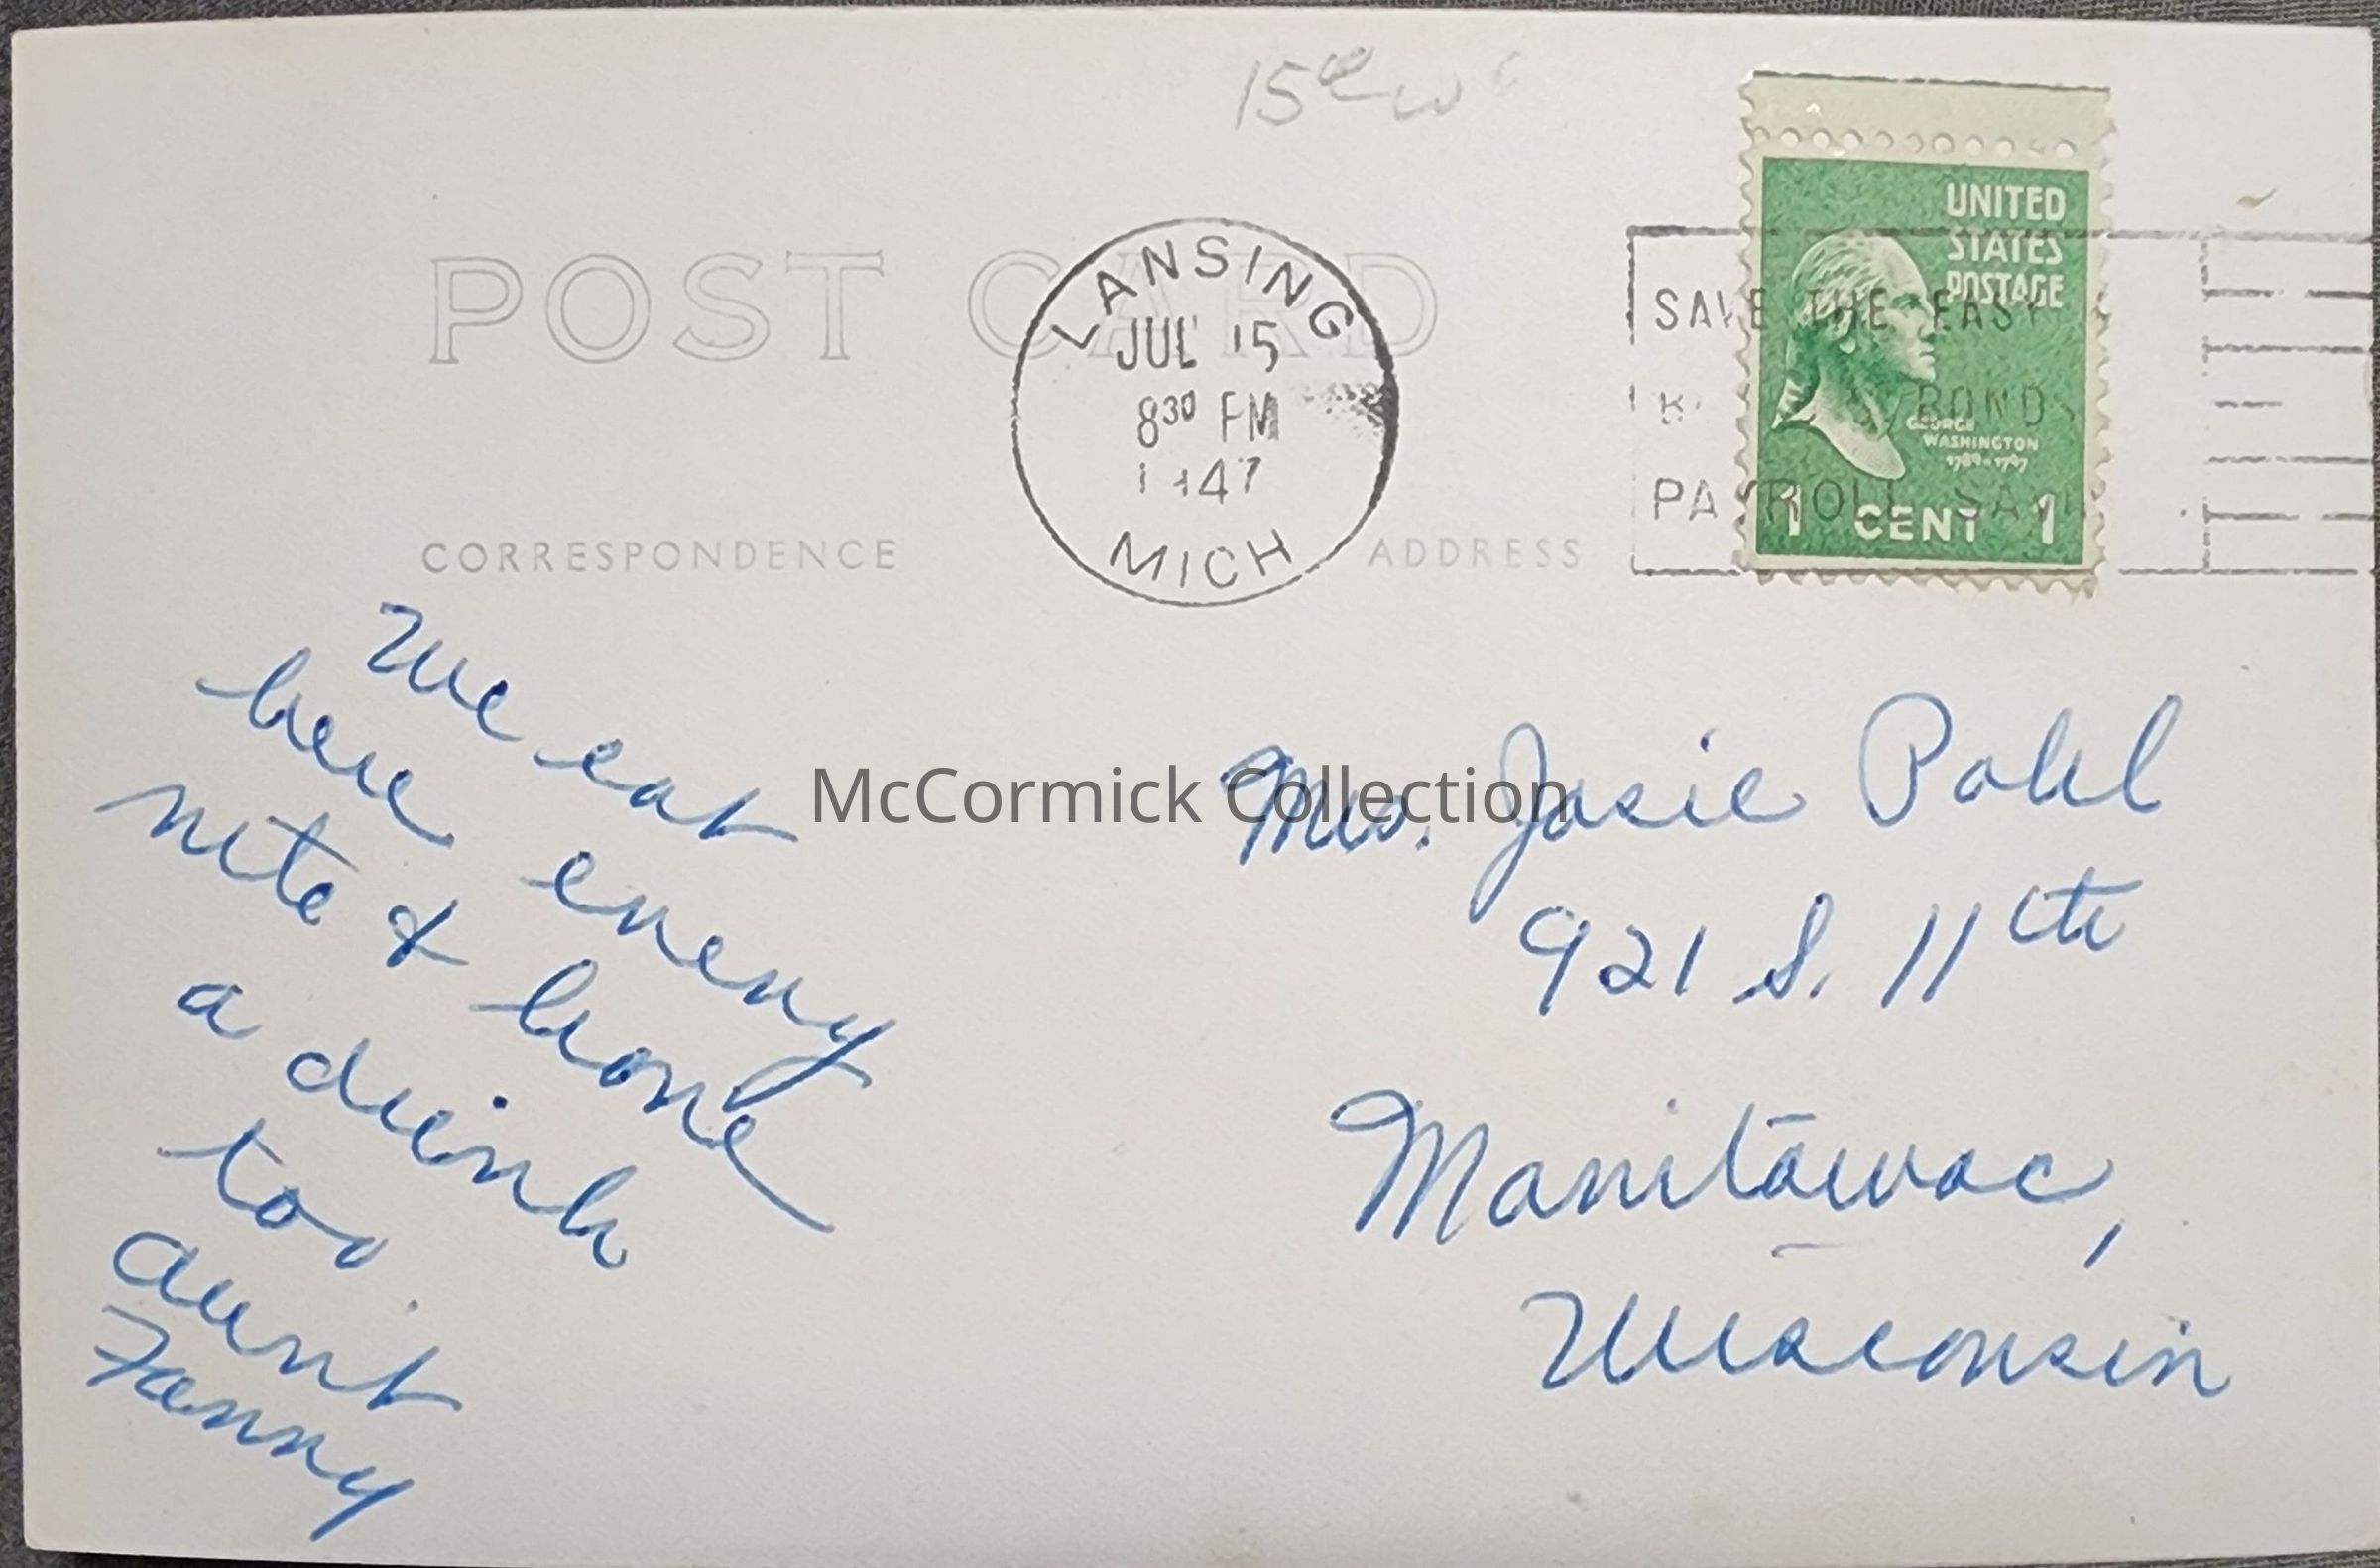 15
POST CARD
LANSING
JUL 15
8³⁰ PM
1947
MICH
UNITED
STATES
POSTAGE
GEORGE
WASHINGTON
1789-1797
1 CENT 1
SAVE THE EASY
BONDS
PAYROLL SAV
CORRESPONDENCE
ADDRESS
We eat
here every
nite & have
a drink
too
Aunt
Fanny
McCormick Collection
Mrs. Josie Pohl
921 S. 11th
Manitowoc,
Wisconsin